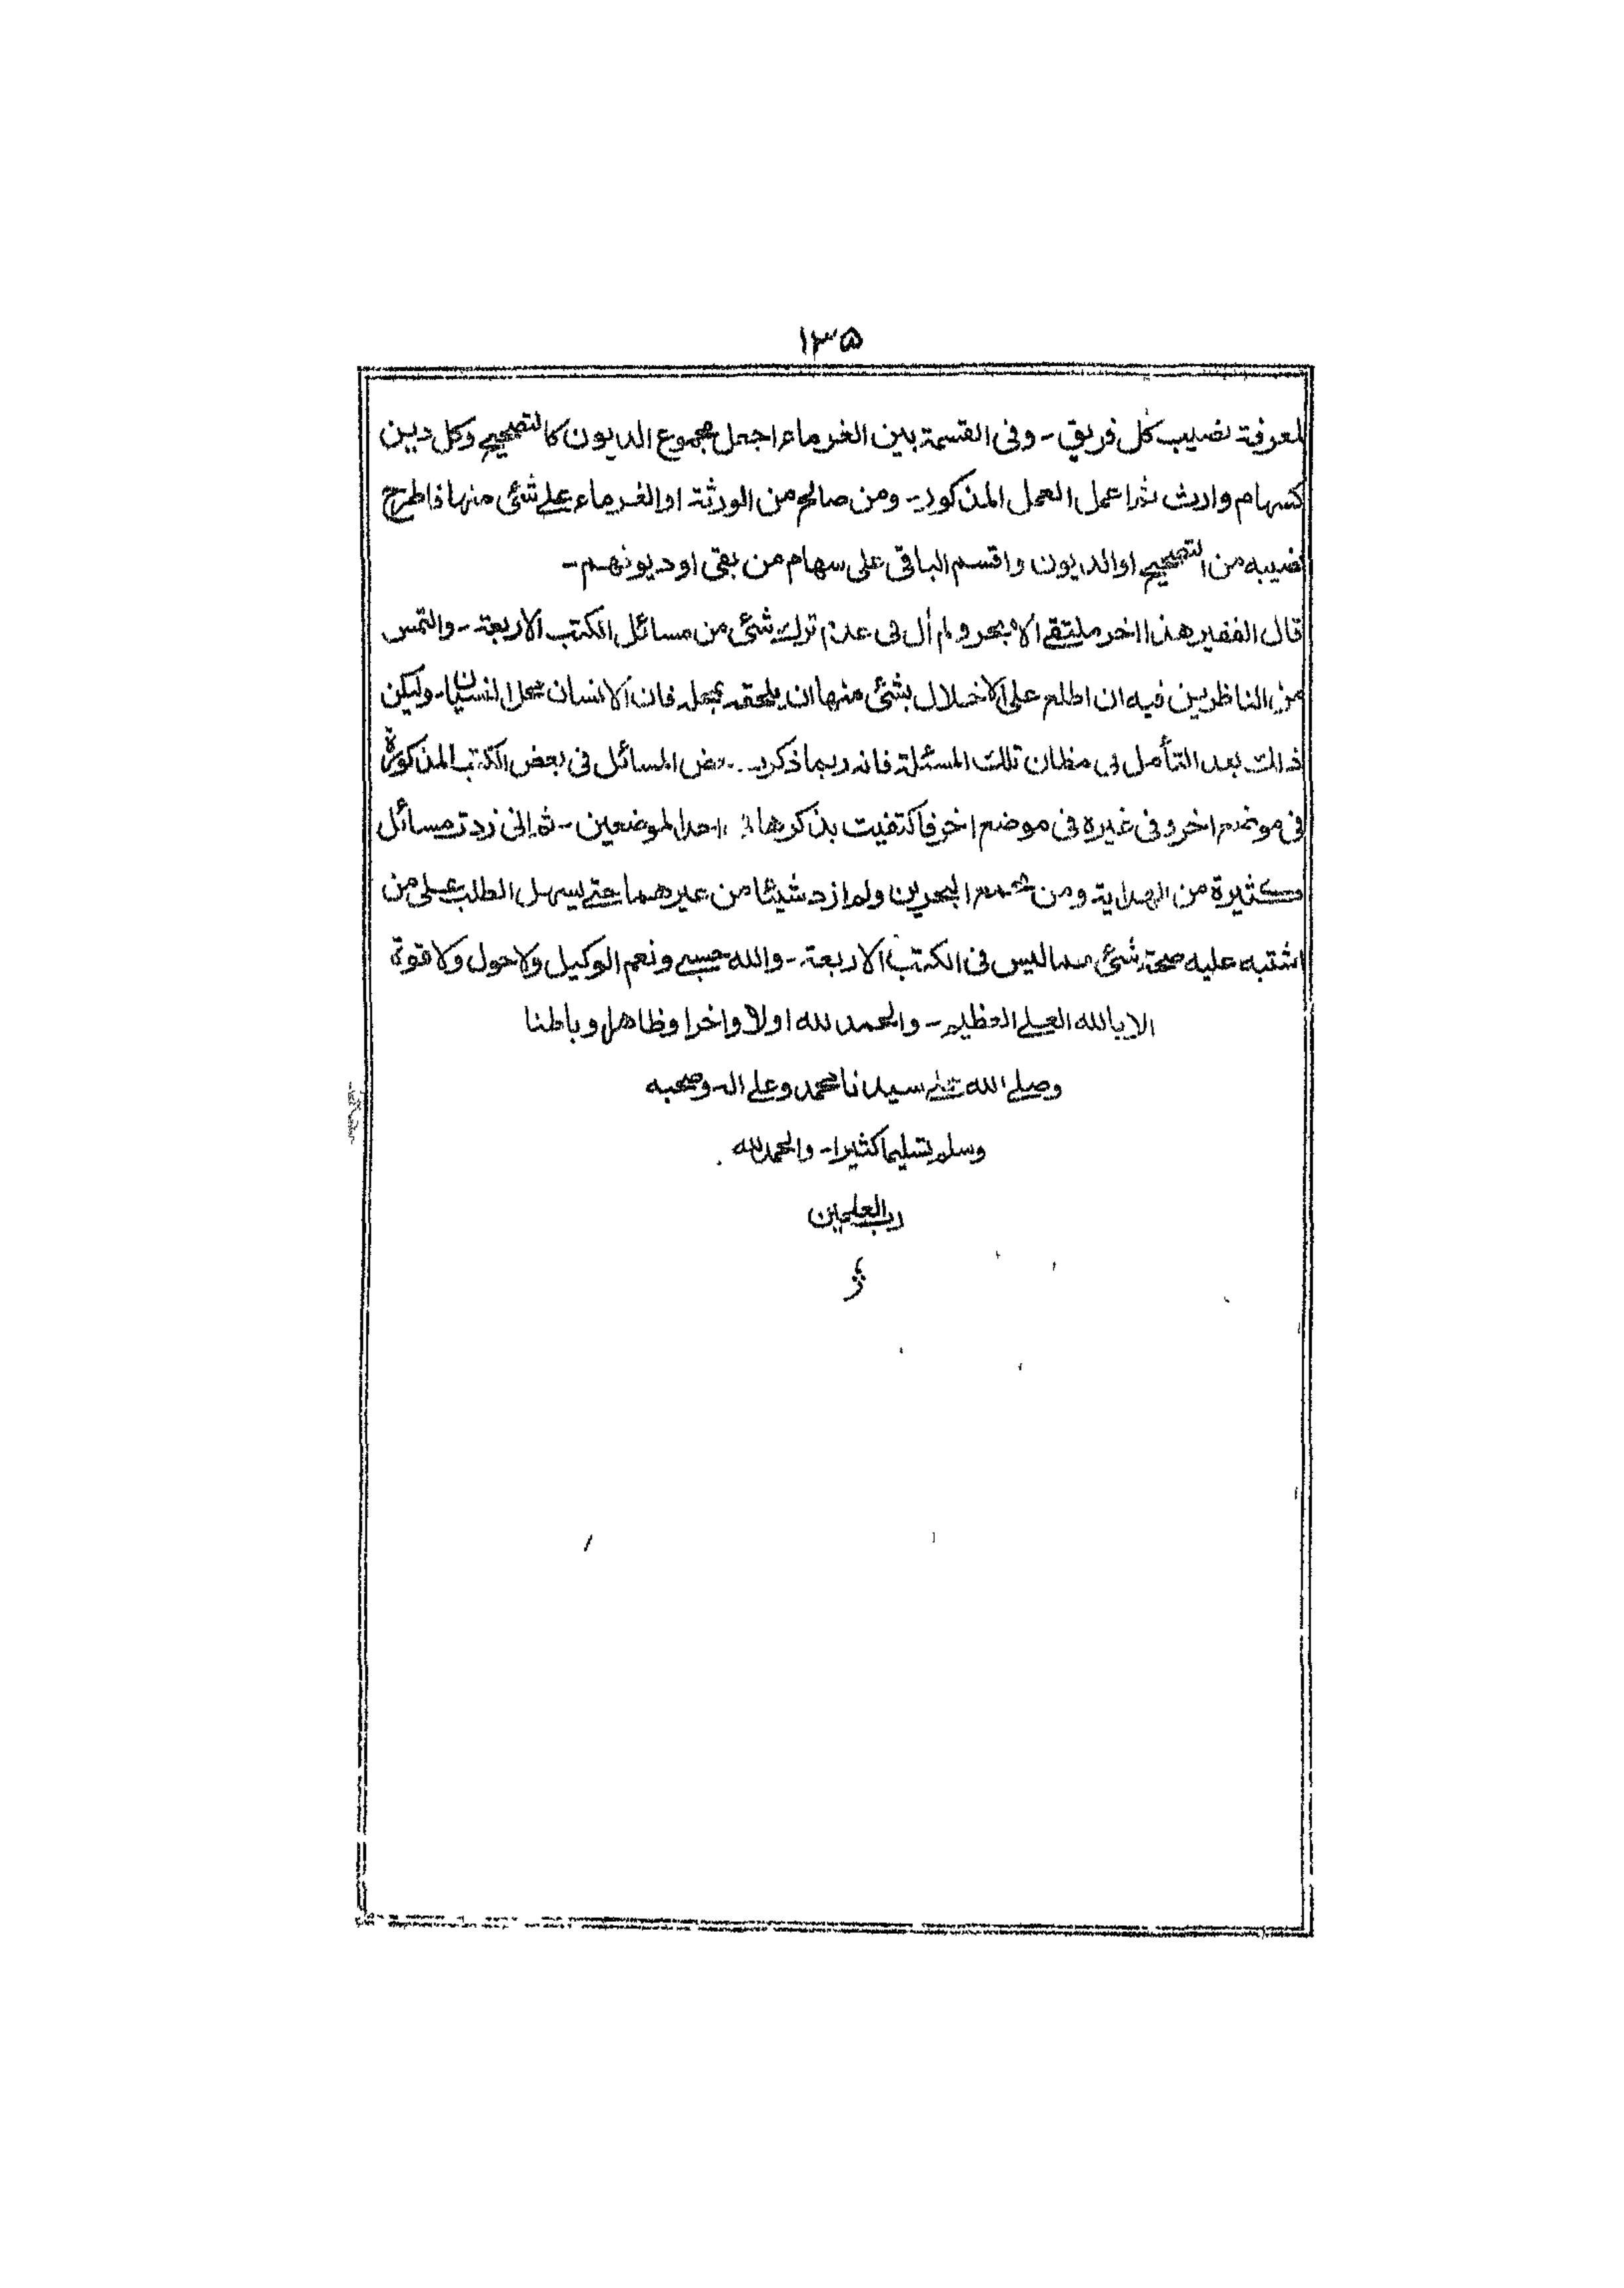 ١٣٥
لمعرفة نصيب كل فريق - وفى القسمة بين الغرماء اجعل مجموع الديون كالتصحيح وكل دين
كسهام وارث ثم اعمل العمل المذكور - ومن صالح من الورثة او الغرماء علے شئ منها فاطرح
نصيبه من التصحيح او الديون واقسم الباقى على سهام من بقى او ديونهم -
قال الفقير هذا اخر ملتقے الابحر ولم أل فى عدم ترك شئ من مسائل الكتب الاربعة - والتمس
من الناظرين فيه ان اطلع على الاخلال بشئ منها ان يلحقه بمحله فان الانسان محل النسيان - وليكن
ذالك بعد التأمل فى مظان تلك المسئلة فانه ربما ذكر بعض المسائل فى بعض الكتب المذكورة
فى موضع اخر وفى غيره فى موضع اخر فاكتفيت بذكرها فى احد الموضعين - ثم انى زدت مسائل
كثيرة من الهداية ومن مجمع البحرين ولم ازد شيئا من غيرهما حتے يسهل الطلب على من
اشتبه عليه صحة شئ مما ليس فى الكتب الاربعة - والله حسبے ونعم الوكيل ولا حول ولا قوة
الا بالله العلے العظيم - والحمد لله اولا واخرا وظاهرا وباطنا
وصلے الله علے سيدنا محمد وعلے اله وصحبه
وسلم تسليما كثيرا - والحمد لله
رب العلمين